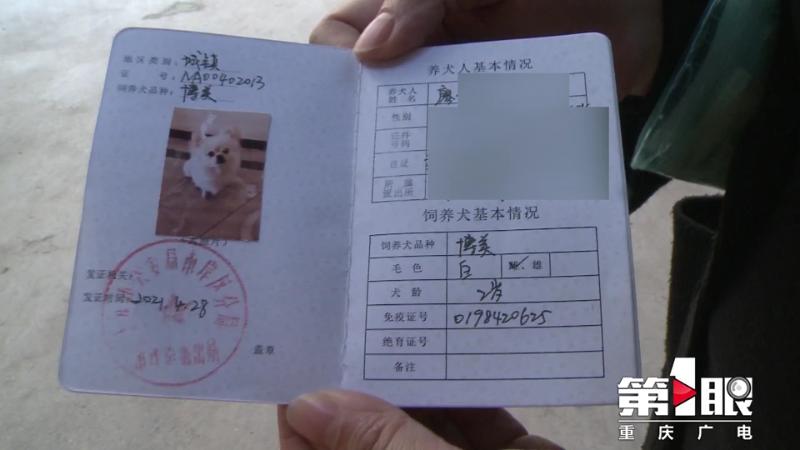 地区类别：城镇
证 号：NA00402013
饲养犬品种：博美
发证机关：
发证时间：2021.4.28
盖章
养犬人基本情况
养犬人姓名 廖
性别
证件号码
住址
所属派出所
饲养犬基本情况
饲养犬品种 博美
毛色 白 雌 雄
犬龄 2岁
免疫证号 0198420625
绝育证号
备注
第1眼
重庆广电